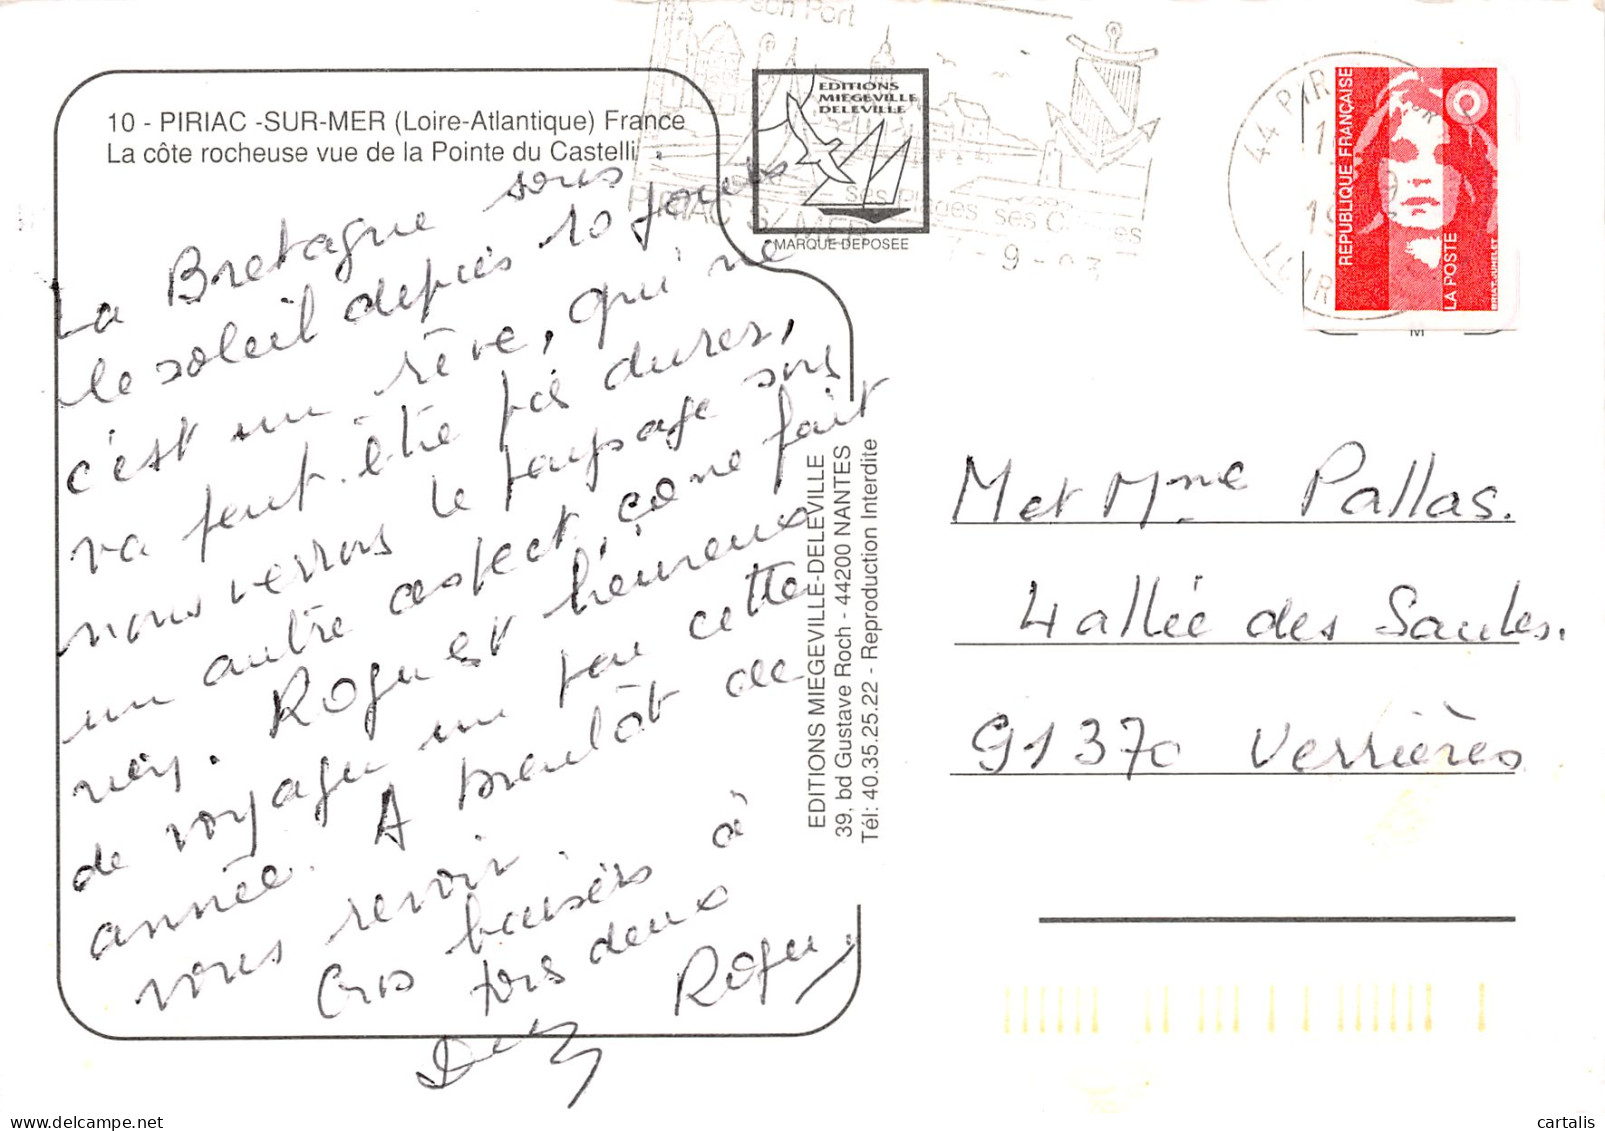 son Port
EDITIONS
MIEGEVILLE
DELEVILLE
MARQUE DEPOSEE
ses plages ses
PIRIAC S/ MER
- 9 -
44 PIR
19
LOIR
RÉPUBLIQUE FRANÇAISE
LA POSTE
M
10 - PIRIAC -SUR-MER (Loire-Atlantique) France
La côte rocheuse vue de la Pointe du Castelli
La Bretagne sous
le soleil depuis 10 jours
c'est un rêve, qui ne
va peut-être pas durer,
nous verrons le paysage sous
un autre aspect, ça ne fait
rien. Roger est heureux
de voyager un peu cette
année. A bientôt de
vous revoir.
Gros baisers à
tous deux
Roger
EDITIONS MIEGEVILLE-DELEVILLE
39, bd Gustave Roch - 44200 NANTES
Tél: 40.35.25.22 - Reproduction Interdite
M et Mme Pallas.
4 allée des Saules.
91370 Verrières
cartalis